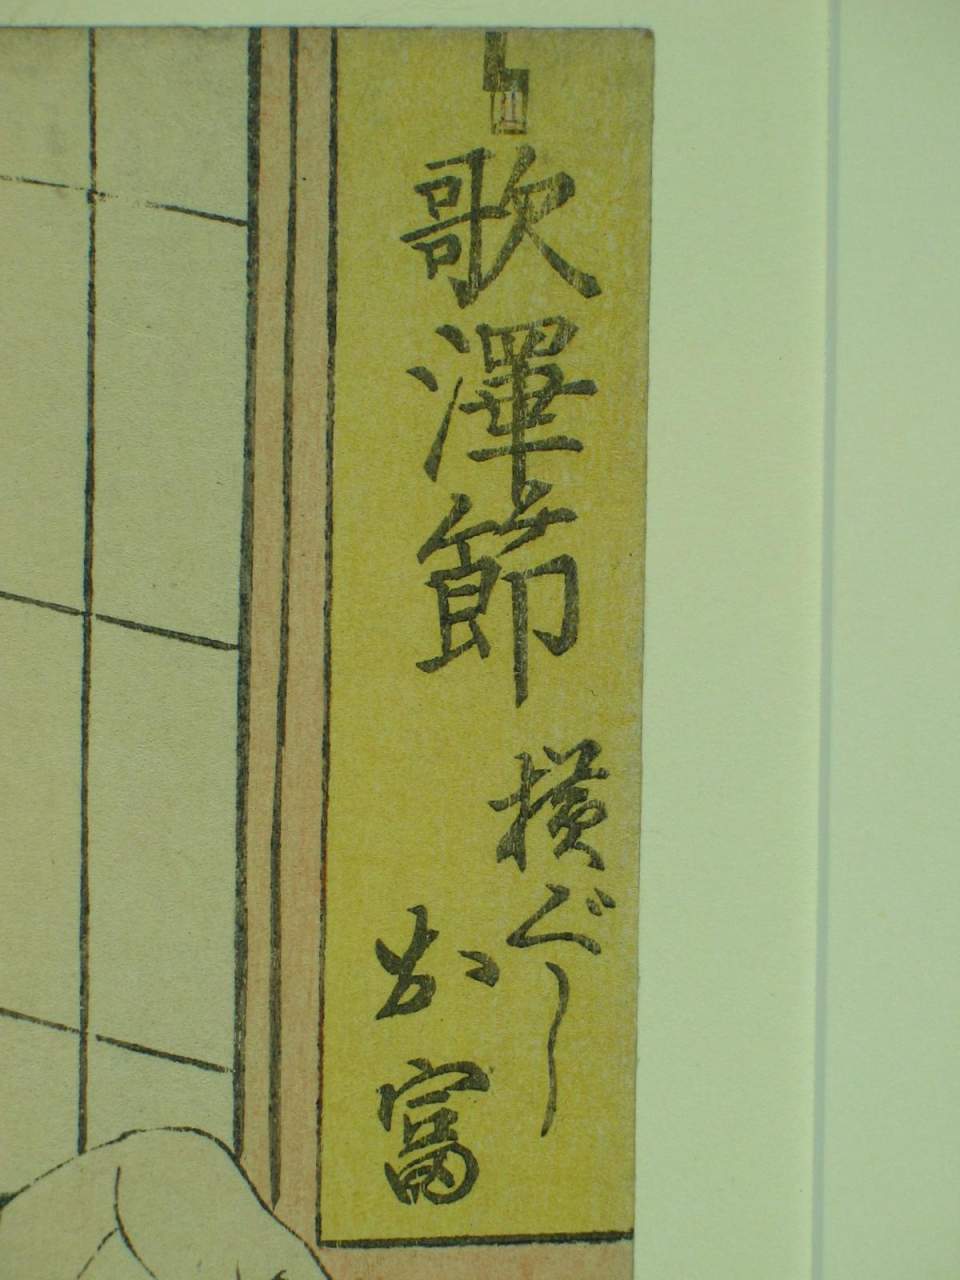 歌澤節
横ぐし
お富